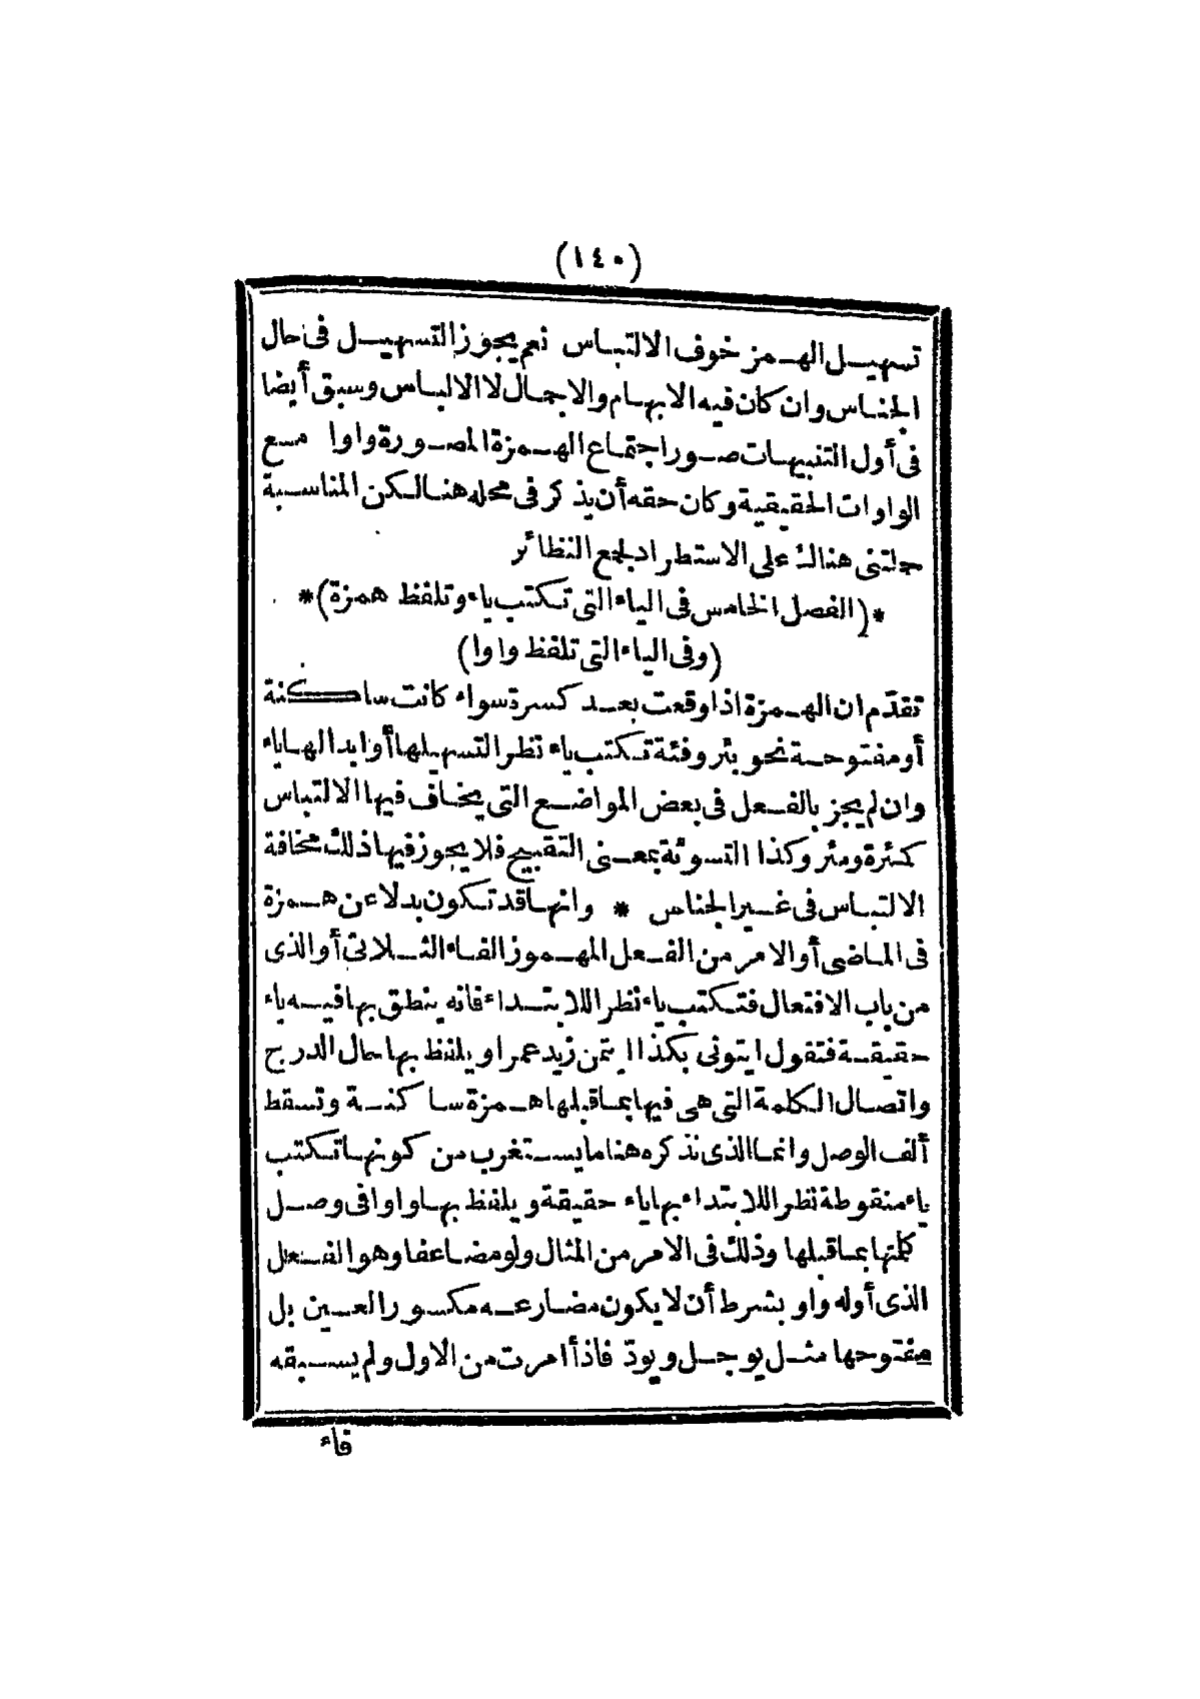 (١٤٠)
تسهيل الهمز خوف الالتباس نعم يجوز التسهيل فى حال
الجناس وان كان فيه الابهام والاجمال لا الالباس وسبق أيضا
فى أول التنبيهات صور اجتماع الهمزة المصورة واوا مع
الواوات الحقيقية وكان حقه أن يذكر فى محله هنا لكن المناسبة
حملتنى هنالك على الاستطراد لجمع النظائر
*(الفصل الخامس فى الياء التى تكتب ياء وتلفظ همزة)*
(وفى الياء التى تلفظ واوا)
تقدّم ان الهمزة اذا وقعت بعد كسرة سواء كانت ساكنة
أو مفتوحة نحو بئر وفئة تكتب ياء نظرا لتسهيلها أو ابدالها ياء
وان لم يجز بالفعل فى بعض المواضع التى يخاف فيها الالتباس
كمئرة ومئر وكذا التسوئة بمعنى التقبيح فلا يجوز فيها ذلك مخافة
الالتباس فى غير الجناس * وانها قد تكون بدلا عن همزة
فى الماضى أو الامر من الفعل المهموز الفاء الثلاثى أو الذى
من باب الافتعال فتكتب ياء نظرا للابتداء فانه ينطق بها فيه ياء
حقيقة فتقول ايتونى بكذا ايتمن زيد عمرا ويلفظ بها حال الدرج
واتصال الكلمة التى هى فيها بما قبلها همزة ساكنة وتسقط
ألف الوصل وانما الذى نذكره هنا ما يستغرب من كونها تكتب
ياء منقوطة نظرا للابتداء بها ياء حقيقة ويلفظ بها واوا فى وصل
كلمتها بما قبلها وذلك فى الامر من المثال ولو مضاعفا وهو الفعل
الذى أوله واو بشرط أن لا يكون مضارعه مكسور العين بل
مفتوحها مثل يوجل ويودّ فاذا أمرت من الاول ولم يسبقه
فاء